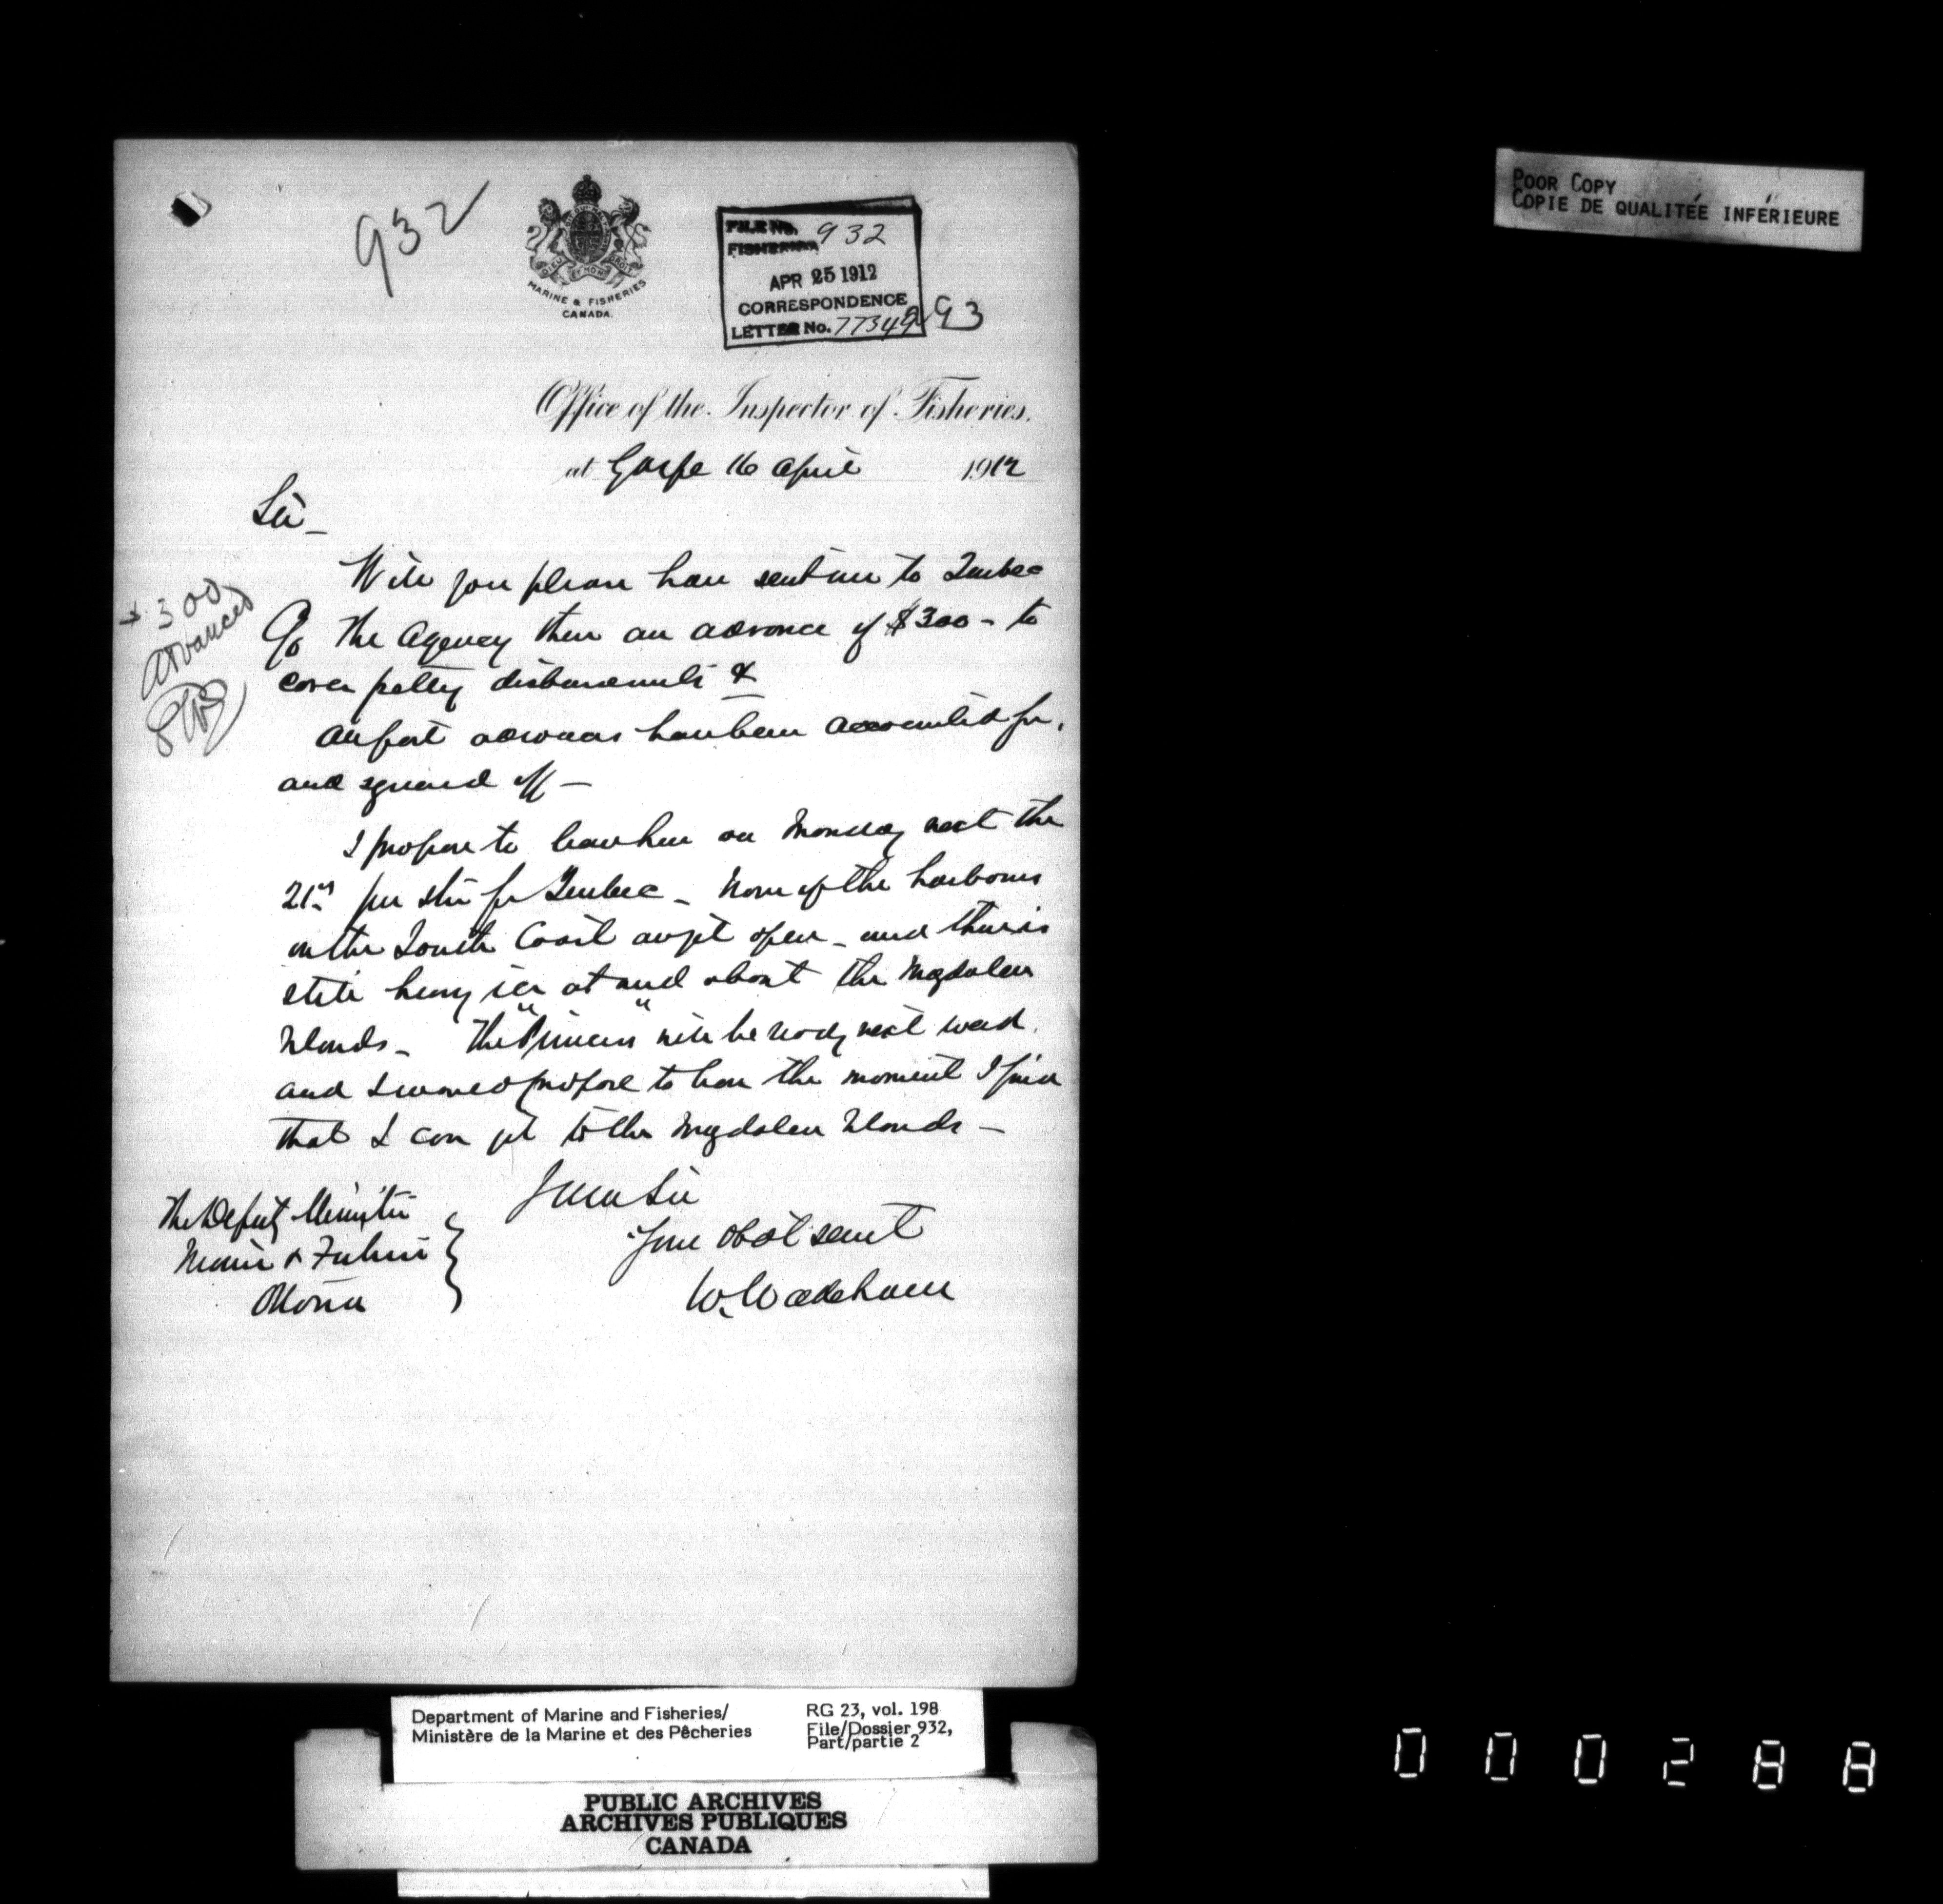 POOR COPY
COPIE DE QUALITÉE INFÉRIEURE
932
DIEU ET MON DROIT
MARINE & FISHERIES
CANADA.
FILE No. 932
FISHERIES
APR 25 1912
CORRESPONDENCE
LETTER No. 77349
93
Office of the Inspector of Fisheries.
at Gaspe 16 April 1912
Sir _
Will you please have sent me to Quebec
c/o The Agency there an advance of $300 - to
cover petty disbursements &
All past advances have been accounted for,
and squared off —
$300
advanced
I propose to leave here on Monday next the
21st per str for Quebec _ None of the harbours
on the South Coast are yet open _ and there is
still heavy ice at and about the Magdalen
Islands _ The "Princess" will be ready next week.
and I would propose to leave the moment I find
that I can get to the Magdalen Islands —
I am Sir
Your obdt servt
W. Wakeham
The Deputy Minister
Marine & Fisheries
Ottawa
Department of Marine and Fisheries/
Ministère de la Marine et des Pêcheries
RG 23, vol. 198
File/Dossier 932,
Part/partie 2
PUBLIC ARCHIVES
ARCHIVES PUBLIQUES
CANADA
000288